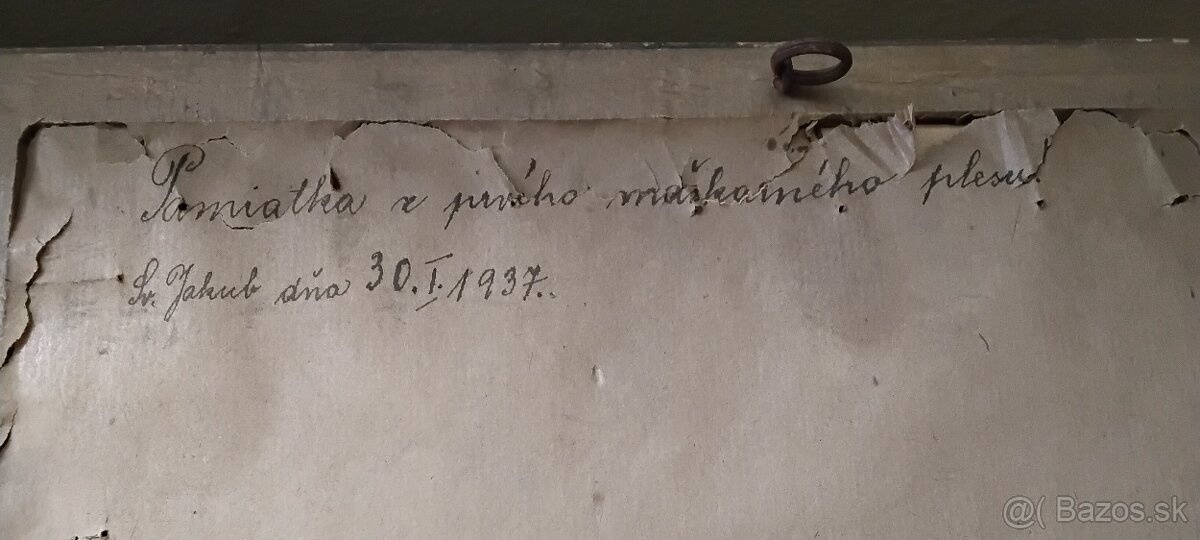 Pamiatka z prvého maškarného plesu.
Sv. Jakub dňa 30. I. 1937.
@( Bazos.sk